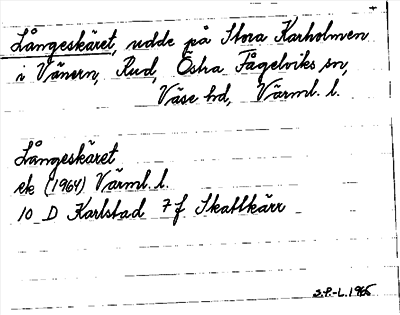 Långeskäret, udde på Stora Karholmen
i Vänern, Rud, Östra Fågelviks sn,
Väse hd, Värml. l.
Långeskäret
ek (1964) Värml. l.
10 D Karlstad 7 f Skattkärr
S.P.-L. 1965